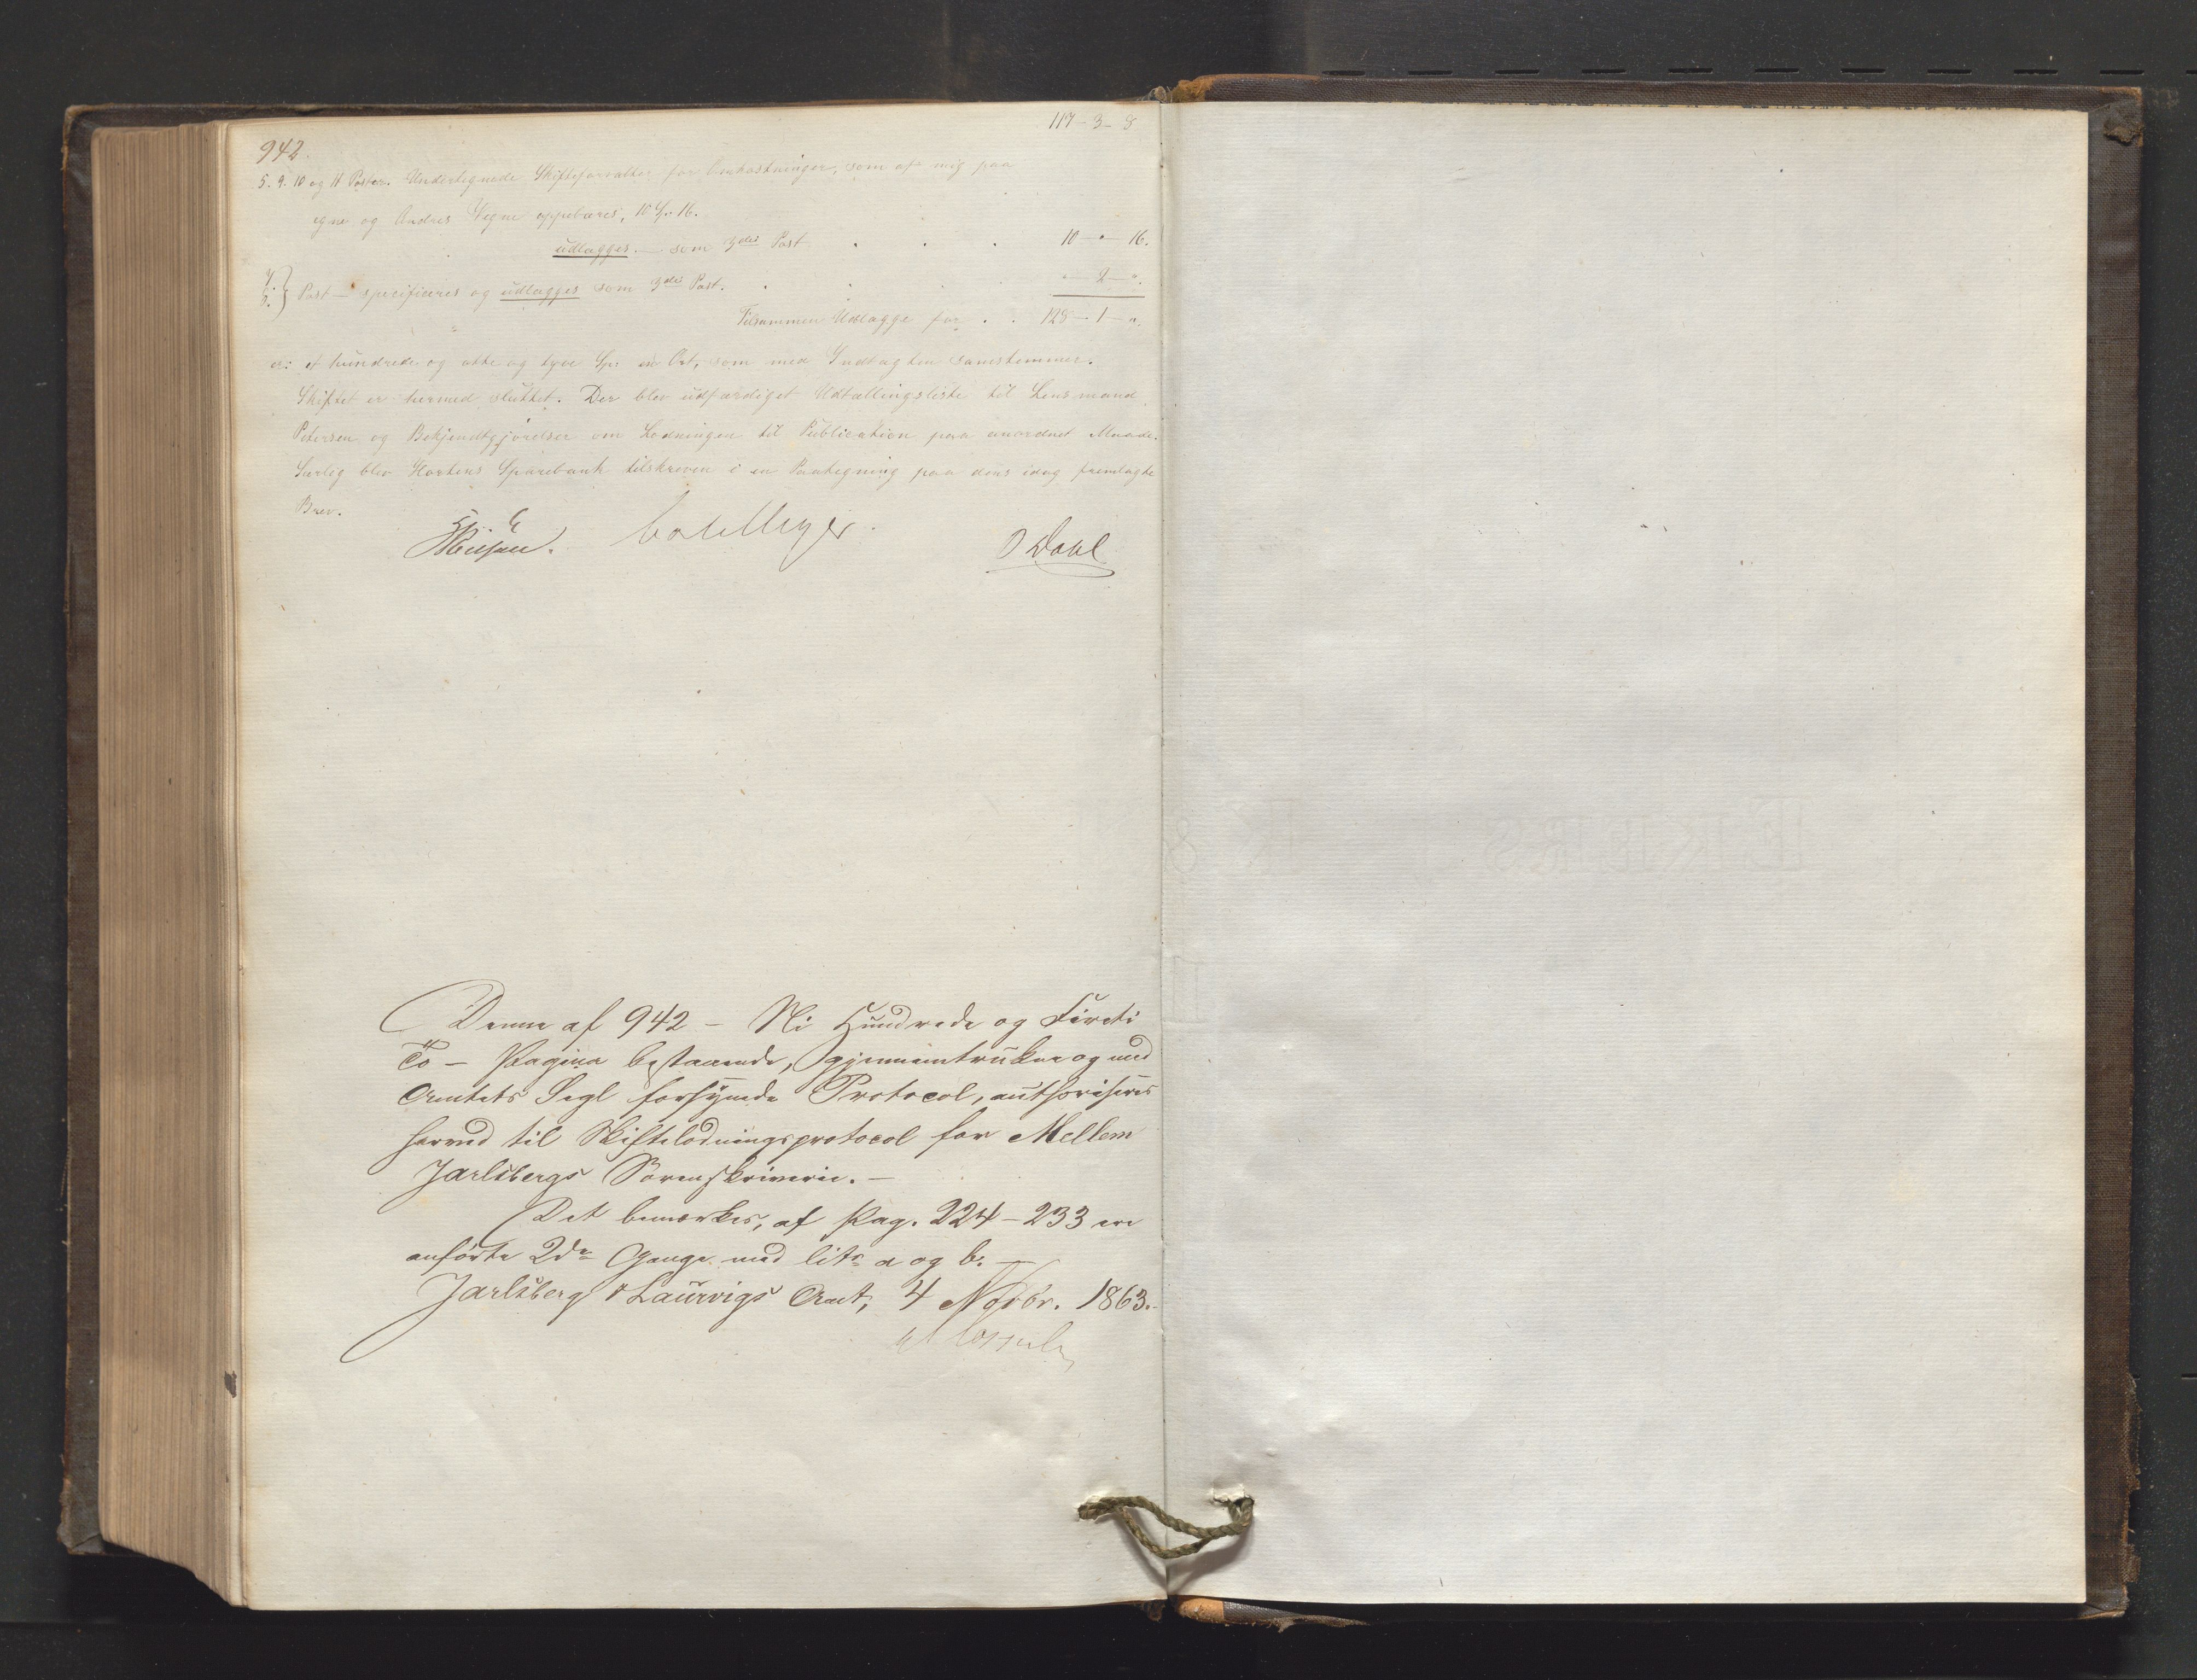 942.
117 - 3 - 8
5. 9. 10 og 11 Poster. Undertegnede Skifteforvalter for Omkostninger, som af mig paa
egne og Andres Vegne oppebæres, 10 Sp. 16.
udlægges. — som 3die Post . . . 10 - " - 16.
Post — specificeres og udlægges som 3die Post. . . . " - 2 - ".
Tilsammen Udlægge for . . 128 - 1 - ".
er: et hundrede og otte og tyve Sp: en Ort, som med Indtægten samstemmer.
Skiftet er hermed sluttet. Der blev udfærdiget Udtællingsliste til Lensmand
Petersen og Bekjendtgjørelser om Lodningen til Publication paa anordnet Maade.
Særlig blev Hortens Sparebank tilskreven i en Paategning paa dens idag fremlagte
Brev.
O Dahl
Denne af 942 - Ni Hundrede og Fireti
To - Pagina bestaaende, gjennemtrukne og med
Amtets Segl forsynede Protocol, authoriseres
herved til Skiftelodningsprotocol for Mellem
Jarlsbergs Sorenskriverie. -
Det bemærkes, at Pag. 224 - 233 ere
anførte 2de Gange med litr a og b. —
Jarlsberg & Laurvigs Amt, 4 Novbr. 1863.